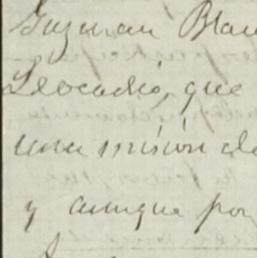 Guzman Blan
Leocadio, que
una mision de
y aunque por